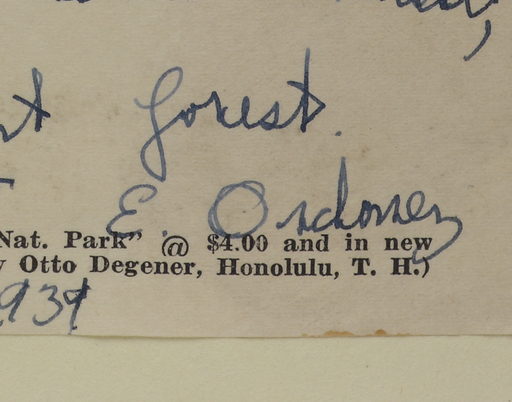 forest.
E. Ordonez
Nat. Park” @ $4.00 and in new
y Otto Degener, Honolulu, T. H.)
1939